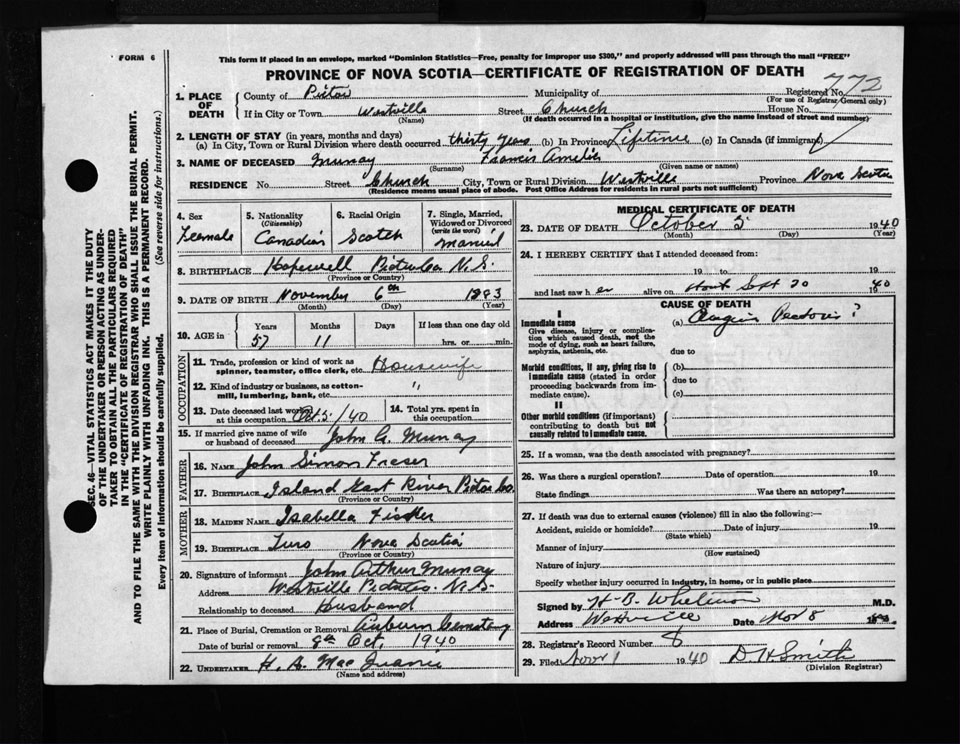 FORM 6
This form if placed in an envelope, marked "Dominion Statistics—Free, penalty for improper use $300," and properly addressed will pass through the mail "FREE"
PROVINCE OF NOVA SCOTIA—CERTIFICATE OF REGISTRATION OF DEATH
Registered No. 772
(For use of Registrar General only)
1. PLACE OF DEATH
County of Pictou Municipality of
If in City or Town Westville Street Church House No.
(Name) (If death occurred in a hospital or institution, give the name instead of street and number)
2. LENGTH OF STAY (in years, months and days)
(a) In City, Town or Rural Division where death occurred thirty years (b) In Province Lifetime (c) In Canada (if immigrant)
3. NAME OF DECEASED Murray Francis Amelia
(Surname) (Given name or names)
RESIDENCE No. Street Church City, Town or Rural Division Westville Province Nova Scotia
(Residence means usual place of abode. Post Office Address for residents in rural parts not sufficient)
4. Sex
Feamale
5. Nationality
(Citizenship)
Canadian
6. Racial Origin
Scotch
7. Single, Married, Widowed or Divorced
(write the word)
married
8. BIRTHPLACE Hopewell Pictou Co N.S.
(Province or Country)
9. DATE OF BIRTH November 6th 1883
(Month) (Day) (Year)
10. AGE in
Years Months Days If less than one day old
57 11 hrs. or min.
OCCUPATION
11. Trade, profession or kind of work as spinner, teamster, office clerk, etc. Housewife
12. Kind of industry or business, as cotton-mill, lumbering, bank, etc. "
13. Date deceased last worked at this occupation Oct. 5/40
14. Total yrs. spent in this occupation
15. If married give name of wife or husband of deceased John A. Murray
FATHER
16. NAME John Simon Fraser
17. BIRTHPLACE Island East River Pictou Co.
(Province or Country)
MOTHER
18. MAIDEN NAME Isabella
19. BIRTHPLACE Turo Nova Scotia
(Province or Country)
20. Signature of informant John Arthur Murray
Address Westville Pictou Co. N.S.
Relationship to deceased Husband
21. Place of Burial, Cremation or Removal Auburn Cemetery
Date of burial or removal 8th Oct, 1940
22. UNDERTAKER H. A.
(Name and address)
MEDICAL CERTIFICATE OF DEATH
23. DATE OF DEATH October 5 1940
(Month) (Day) (Year)
24. I HEREBY CERTIFY that I attended deceased from:
19 to 19
and last saw her alive on about Sept 20 1940
CAUSE OF DEATH
I
Immediate cause
Give disease, injury or complication which caused death, not the mode of dying, such as heart failure, asphyxia, asthenia, etc.
(a) Angina Pectoris ?
due to
Morbid conditions, if any, giving rise to immediate cause (stated in order proceeding backwards from immediate cause).
(b)
due to
(c)
II
Other morbid conditions (if important) contributing to death but not causally related to immediate cause.
25. If a woman, was the death associated with pregnancy?
26. Was there a surgical operation? Date of operation 19
State findings Was there an autopsy?
27. If death was due to external causes (violence) fill in also the following:—
Accident, suicide or homicide? Date of injury 19
(State which)
Manner of injury
(How sustained)
Nature of injury
Specify whether injury occurred in industry, in home, or in public place
Signed by H. B. M.D.
Address Westville Date Nov 8
28. Registrar's Record Number 8
29. Filed Nov 1 1940 D H Smith
(Division Registrar)
SEC. 46—VITAL STATISTICS ACT MAKES IT THE DUTY
OF THE UNDERTAKER OR PERSON ACTING AS UNDER-
TAKER TO OBTAIN ALL THE PARTICULARS REQUIRED
IN THE "CERTIFICATE OF REGISTRATION OF DEATH"
AND TO FILE THE SAME WITH THE DIVISION REGISTRAR WHO SHALL ISSUE THE BURIAL PERMIT.
WRITE PLAINLY WITH UNFADING INK. THIS IS A PERMANENT RECORD.
Every item of information should be carefully supplied. (See reverse side for instructions.)